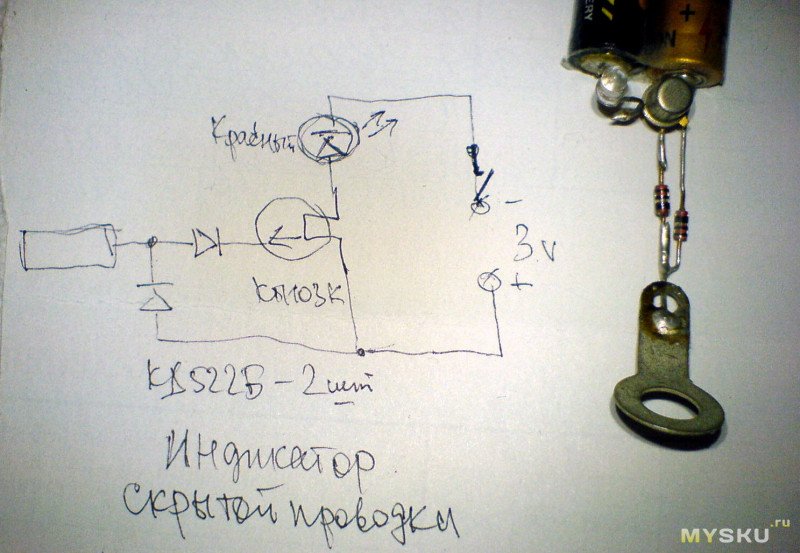 Красный
-
3 v
+
КП103К
КД522Б - 2 шт
Индикатор
скрытой проводки
+
MYSKU.ru